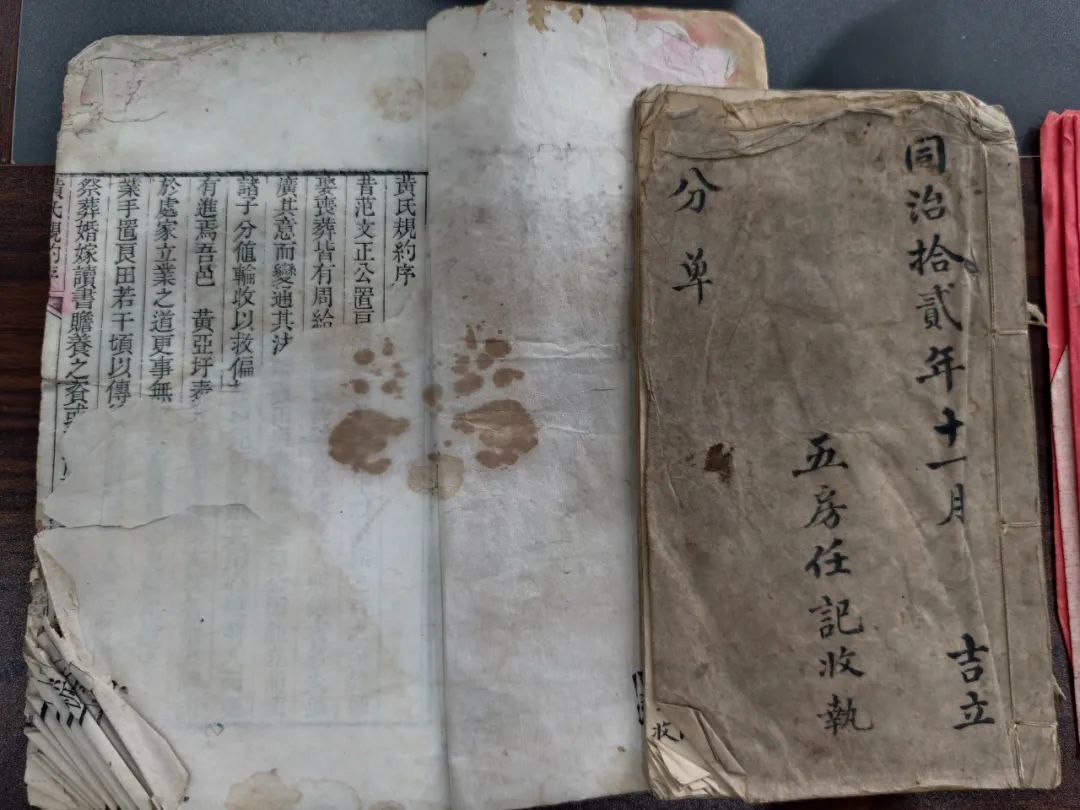 同治拾貳年十一月 吉立
五房任記收執
分单
收
黃氏規約序
昔范文正公置
娶喪葬皆有周給
廣其意而變通其法
諸子分値輪收以救偏
有進焉吾邑 黃亞圩素
於處家立業之道更事無
業手置良田若干頃以傳
祭葬婚嫁讀書贍養之資或
黃氏規約序